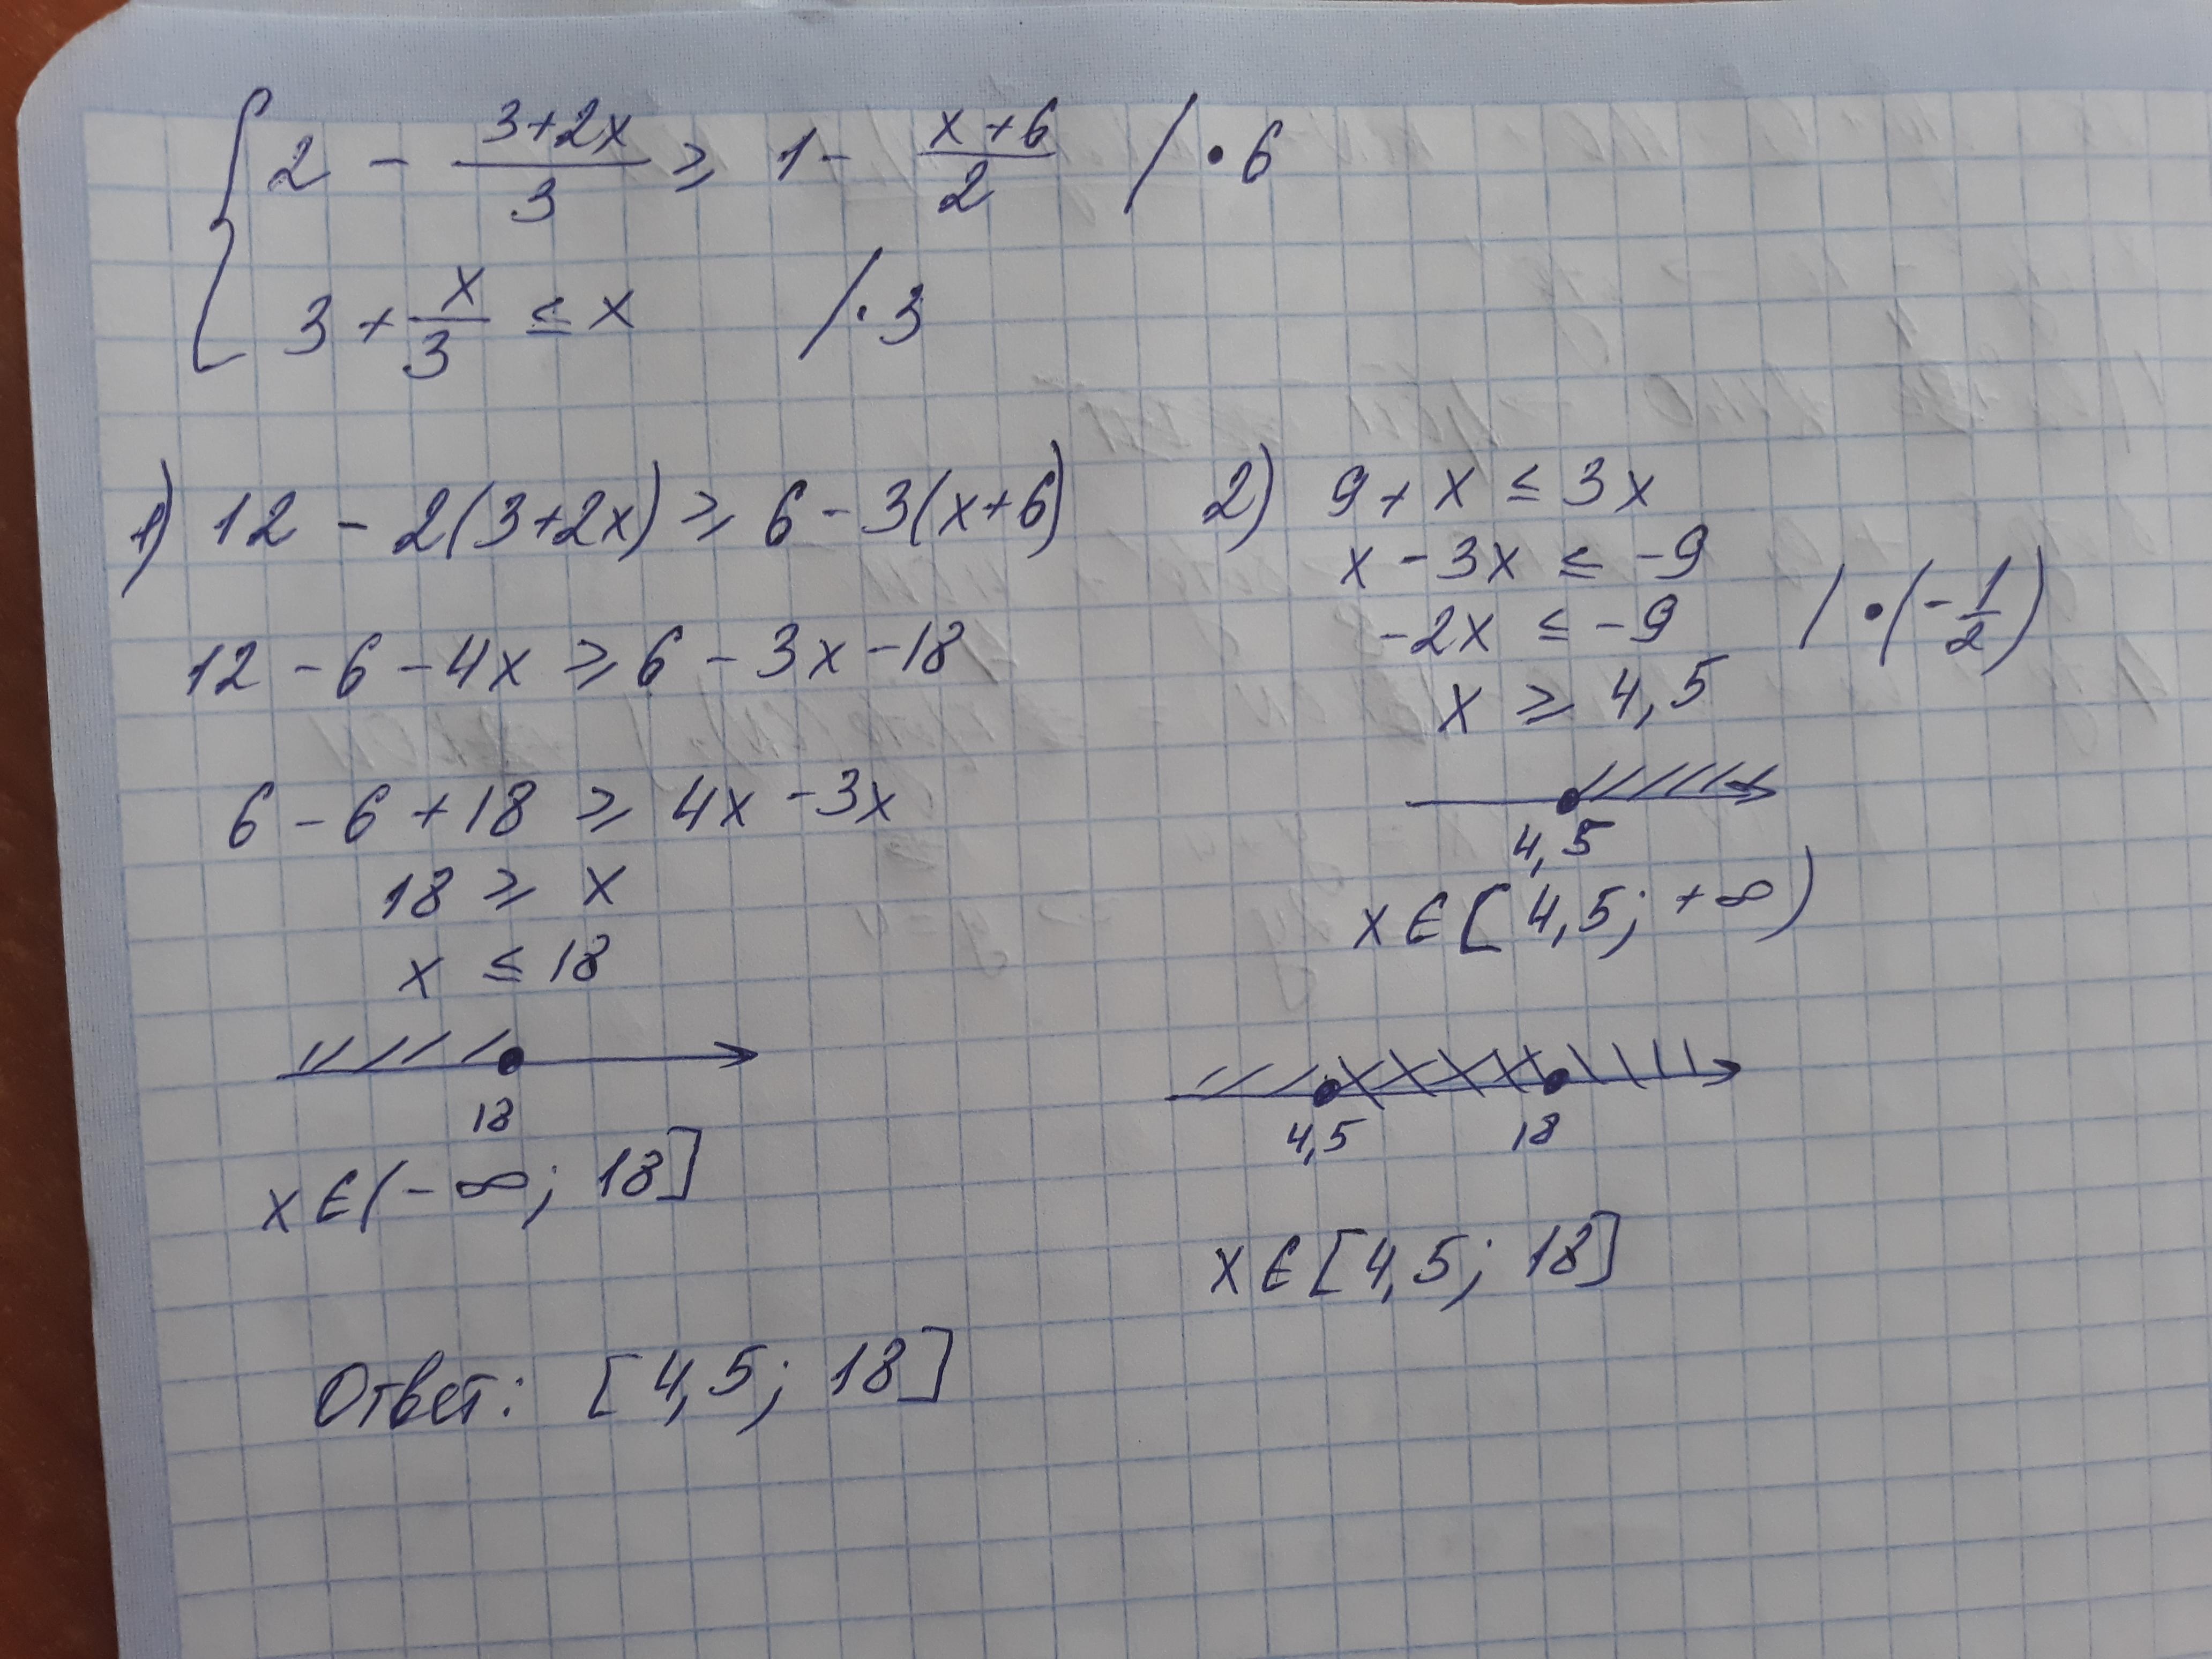 2 - (3+2x)/3 ≥ 1 - (x+6)/2 / • 6
3 + x/3 ≤ x / • 3
1) 12 - 2(3+2x) ≥ 6 - 3(x+6)
12 - 6 - 4x ≥ 6 - 3x - 18
6 - 6 + 18 ≥ 4x - 3x
18 ≥ x
x ≤ 18
18
x ∈ (-∞; 18]
2) 9 + x ≤ 3x
x - 3x ≤ -9
-2x ≤ -9 / • (-1/2)
x ≥ 4,5
4,5
x ∈ [4,5; +∞)
4,5 18
x ∈ [4,5; 18]
Ответ: [4,5; 18]